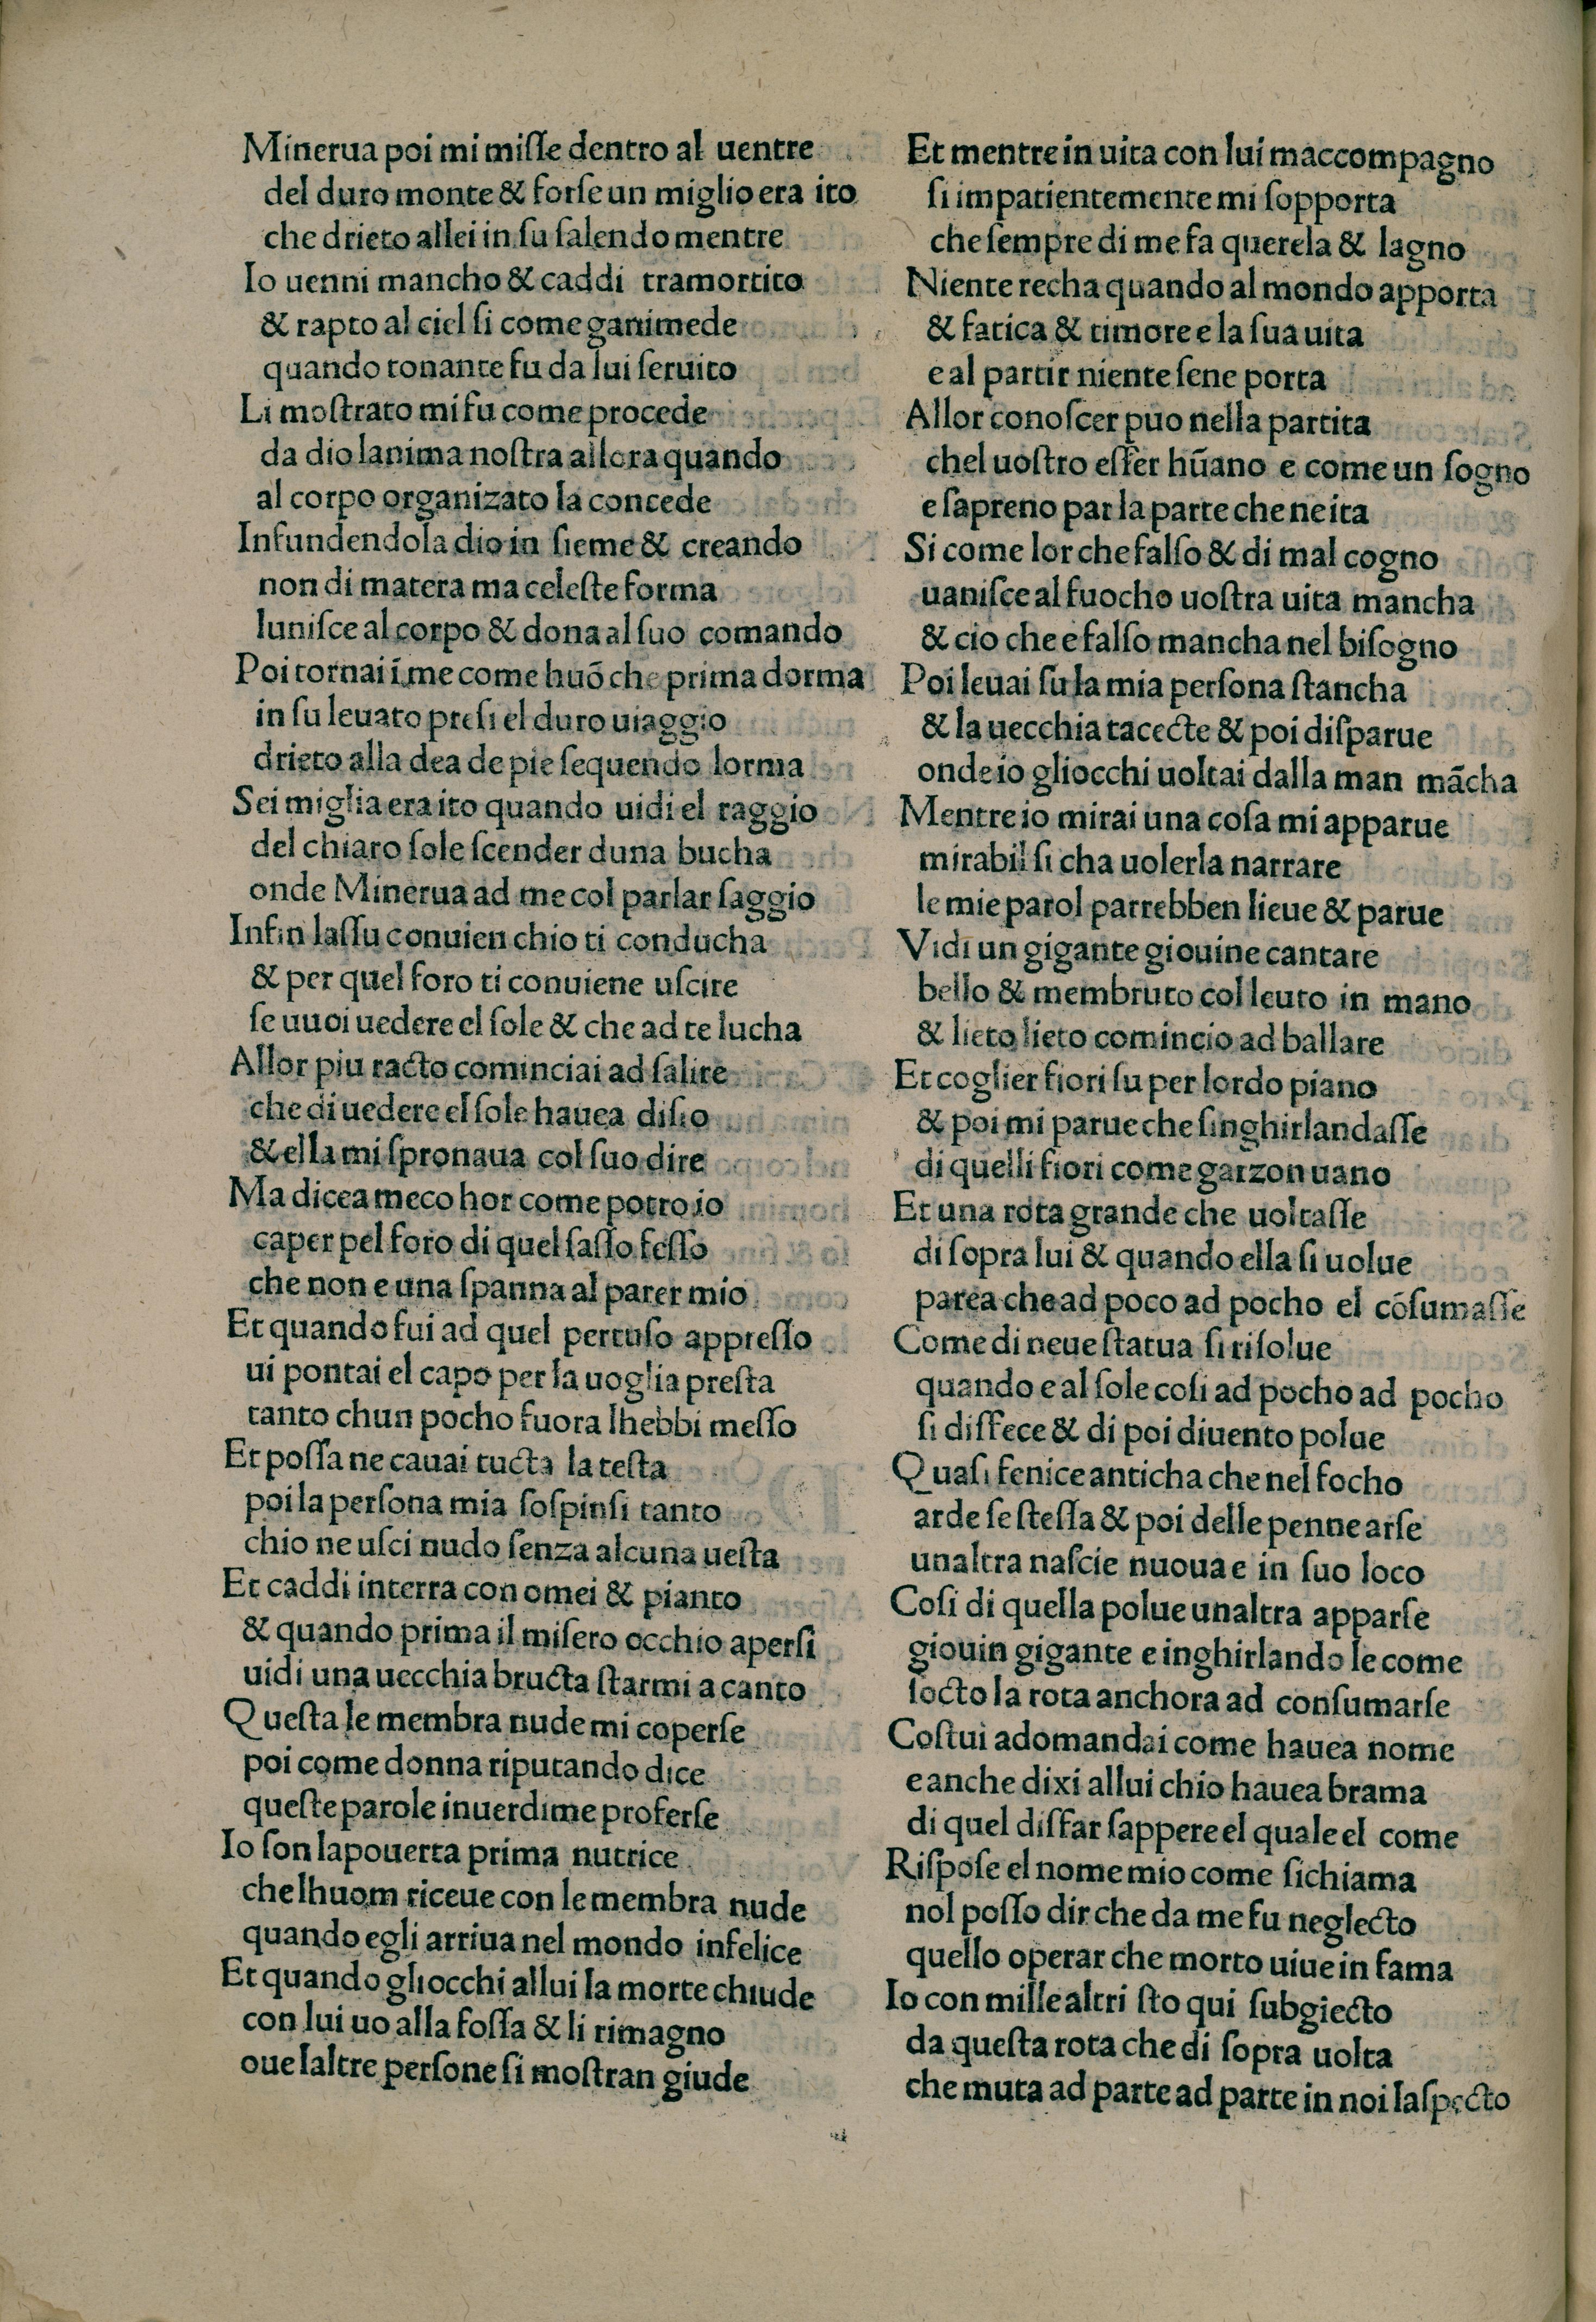 Minerua poi mi miſſe dentro al uentre
del duro monte & forſe un miglio era ito
che drieto allei in ſu ſalendo mentre
Io uenni mancho & caddi tramortito
& rapto al ciel ſi come ganimede
quando tonante fu da lui ſeruito
Li moſtrato mi fu come procede
da dio lanima noſtra allora quando
al corpo organizato la concede
Infundendola dio in ſieme & creando
non di matera ma celeſte forma
luniſce al corpo & dona al ſuo comando
Poi tornai ī me come huō che prima dorma
in ſu leuato preſi el duro uiaggio
drieto alla dea de pie ſequendo lorma
Sei miglia era ito quando uidi el raggio
del chiaro ſole ſcender duna bucha
onde Minerua ad me col parlar ſaggio
Infin laſſu conuien chio ti conducha
& per quel foro ti conuiene uſcire
ſe uuoi uedere el ſole & che ad te lucha
Allor piu racto cominciai ad ſalire
che di uedere el ſole hauea diſio
& ella mi ſpronaua col ſuo dire
Ma dicea meco hor come potro io
caper pel foro di quel ſaſſo feſſo
che non e una ſpanna al parer mio
Et quando fui ad quel pertuſo appreſſo
ui pontai el capo per la uoglia preſta
tanto chun pocho fuora lhebbi meſſo
Et poſſa ne cauai tucta la teſta
poi la perſona mia ſoſpinſi tanto
chio ne uſci nudo ſenza alcuna ueſta
Et caddi interra con omei & pianto
& quando prima il miſero occhio aperſi
uidi una uecchia bructa ſtarmi a canto
Queſta le membra nude mi coperſe
poi come donna riputando dice
queſte parole inuerdime proferſe
Io ſon lapouerta prima nutrice
chelhuom riceue con le membra nude
quando egli arriua nel mondo infelice
Et quando gliocchi allui la morte chiude
con lui uo alla foſſa & li rimagno
oue laltre perſone ſi moſtran giude
Et mentre in uita con lui maccompagno
ſi impatientemente mi ſopporta
che ſempre di me fa querela & lagno
Niente recha quando al mondo apporta
& fatica & timore e la ſua uita
e al partir niente ſene porta
Allor conoſcer puo nella partita
chel uoſtro eſſer hūano e come un ſogno
e ſapreno par la parte che neita
Si come lor che falſo & di mal cogno
uaniſce al fuocho uoſtra uita mancha
& cio che e falſo mancha nel biſogno
Poi leuai ſu la mia perſona ſtancha
& la uecchia tacecte & poi diſparue
onde io gliocchi uoltai dalla man mācha
Mentre io mirai una coſa mi apparue
mirabil ſi cha uolerla narrare
le mie parol parrebben lieue & parue
Vidi un gigante giouine cantare
bello & membruto col leuto in mano
& lieto lieto comincio ad ballare
Et coglier fiori ſu per lordo piano
& poi mi parue che ſinghirlandaſſe
di quelli fiori come garzon uano
Et una rota grande che uoltaſſe
di ſopra lui & quando ella ſi uolue
parea che ad poco ad pocho el cōſumaſſe
Come di neue ſtatua ſi riſolue
quando e al ſole coſi ad pocho ad pocho
ſi diſfece & di poi diuento polue
Quaſi fenice anticha che nel focho
arde ſe ſteſſa & poi delle penne arſe
unaltra naſcie nuoua e in ſuo loco
Coſi di quella polue unaltra apparſe
giouin gigante e inghirlando le come
ſocto la rota anchora ad conſumarſe
Coſtui adomandai come hauea nome
e anche dixi allui chio hauea brama
di quel diſfar ſappere el quale el come
Riſpoſe el nome mio come ſichiama
nol poſſo dir che da me fu neglecto
quello operar che morto uiue in fama
Io con mille altri ſto qui ſubgiecto
da queſta rota che di ſopra uolta
che muta ad parte ad parte in noi laſpecto